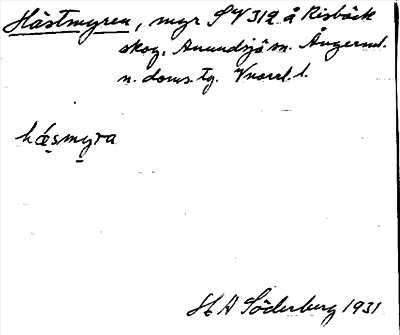 Hästmyren, myr SV 312 å Risbäck
skog, Anundsjö sn. Ångerml.
n. doms. tg. V norrl. l.
hǽsmyra
H A Söderberg 1931